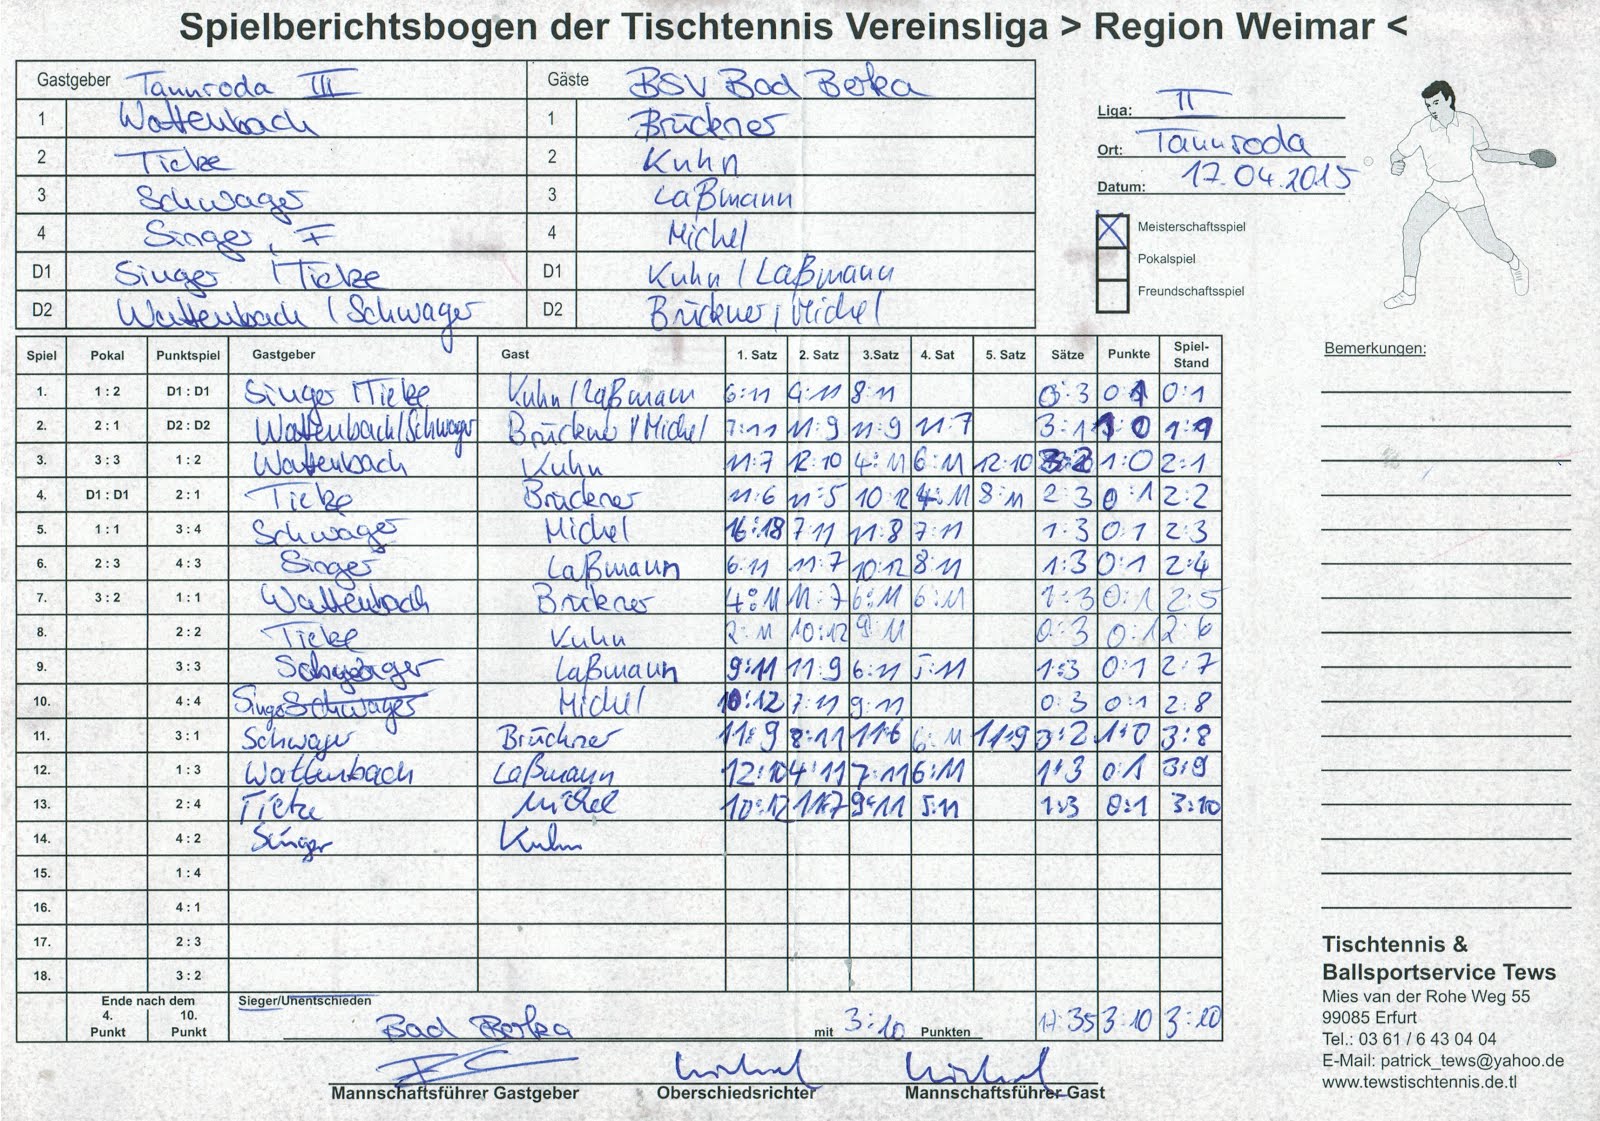 Spielberichtsbogen der Tischtennis Vereinsliga > Region Weimar <
Gastgeber Tannroda III Gäste BSV Bad Berka
1 Wattenbach 1 Brückner
2 Tietze 2 Kuhn
3 Schwager 3 Laßmann
4 Singer, F 4 Michel
D1 Singer / Tietze D1 Kuhn / Laßmann
D2 Wattenbach / Schwager D2 Brückner / Michel
Liga: II
Ort: Tannroda
Datum: 17.04.2015
Meisterschaftsspiel
Pokalspiel
Freundschaftsspiel
Spiel Pokal Punktspiel Gastgeber Gast 1. Satz 2. Satz 3.Satz 4. Sat 5. Satz Sätze Punkte Spiel-Stand
1. 1 : 2 D1 : D1 Singer / Tietze Kuhn / Laßmann 6:11 9:11 8:11 0:3 0 1 0:1
2. 2 : 1 D2 : D2 Wattenbach/Schwager Brückner / Michel 7:11 11:9 11:9 11:7 3:1 1:0 1:1
3. 3 : 3 1 : 2 Wattenbach Kuhn 11:7 12:10 4:11 6:11 12:10 3:2 1:0 2:1
4. D1 : D1 2 : 1 Tietze Brückner 11:6 11:5 10:12 4:11 8:11 2:3 0:1 2:2
5. 1 : 1 3 : 4 Schwager Michel 16:18 7:11 11:8 7:11 1:3 0:1 2:3
6. 2 : 3 4 : 3 Singer Laßmann 6:11 11:7 10:12 8:11 1:3 0:1 2:4
7. 3 : 2 1 : 1 Wattenbach Brückner 4:11 11:7 6:11 6:11 1:3 0:1 2:5
8. 2 : 2 Tietze Kuhn 2:11 10:12 9:11 0:3 0:1 2:6
9. 3 : 3 Schwager Laßmann 9:11 11:9 6:11 5:11 1:3 0:1 2:7
10. 4 : 4 Singer Schwager Michel 10:12 7:11 9:11 0:3 0:1 2:8
11. 3 : 1 Schwager Brückner 11:9 8:11 11:6 6:11 11:9 3:2 1:0 3:8
12. 1 : 3 Wattenbach Laßmann 12:10 4:11 7:11 6:11 1:3 0:1 3:9
13. 2 : 4 Tietze Michel 10:12 11:7 9:11 5:11 1:3 0:1 3:10
14. 4 : 2 Singer Kuhn
15. 1 : 4
16. 4 : 1
17. 2 : 3
18. 3 : 2
Ende nach dem
4. Punkt 10. Punkt
Sieger/Unentschieden
Bad Berka mit 3:10 Punkten 17:35 3:10 3:10
Michel Michel
Mannschaftsführer Gastgeber Oberschiedsrichter Mannschaftsführer Gast
Bemerkungen:
Tischtennis &
Ballsportservice Tews
Mies van der Rohe Weg 55
99085 Erfurt
Tel.: 03 61 / 6 43 04 04
E-Mail: patrick_tews@yahoo.de
www.tewstischtennis.de.tl